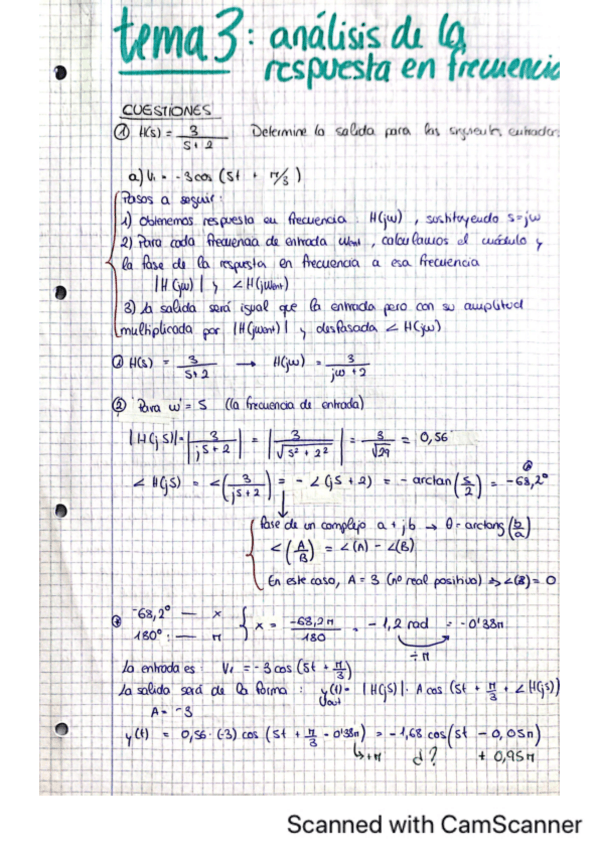 tema 3: análisis de la
respuesta en frecuencia
CUESTIONES
① H(s) = 3/(s+2) Determine la salida para las siguientes entradas:
a) Vi = -3cos (5t + π/3)
Pasos a seguir:
1) Obtenemos respuesta en frecuencia H(jw), sustituyendo s=jw
2) Para cada frecuencia de entrada went, calculamos el módulo y
la fase de la respuesta en frecuencia a esa frecuencia
|H(jw)| y ∠H(jwent)
3) La salida será igual que la entrada pero con su amplitud
multiplicada por |H(jwent)| y desfasada ∠H(jw)
① H(s) = 3/(s+2) → H(jw) = 3/(jw+2)
② Para w = 5 (la frecuencia de entrada)
|H(j5)| = |3/(j5+2)| = |3/√(5²+2²)| = 3/√29 = 0,56
∠H(j5) = ∠(3/(j5+2)) = -∠(j5+2) = -arctan(5/2) = -68,2°
fase de un complejo a+jb → θ = arctang(b/a)
∠(A/B) = ∠(A) - ∠(B)
En este caso, A = 3 (nº real positivo) => ∠(3) = 0
-68,2° — x
180° : — π } x = -68,2π/180 = -1,2 rad = -0'38π
÷π
La entrada es: Vi = -3cos(5t + π/3)
La salida será de la forma: y(t) = |H(j5)|· A cos (5t + π/3 + ∠H(j5))
Vout
A = -3
y(t) = 0,56·(-3) cos (5t + π/3 - 0'38π) = -1,68 cos(5t - 0,05π)
↳+π d? + 0,95π
Scanned with CamScanner